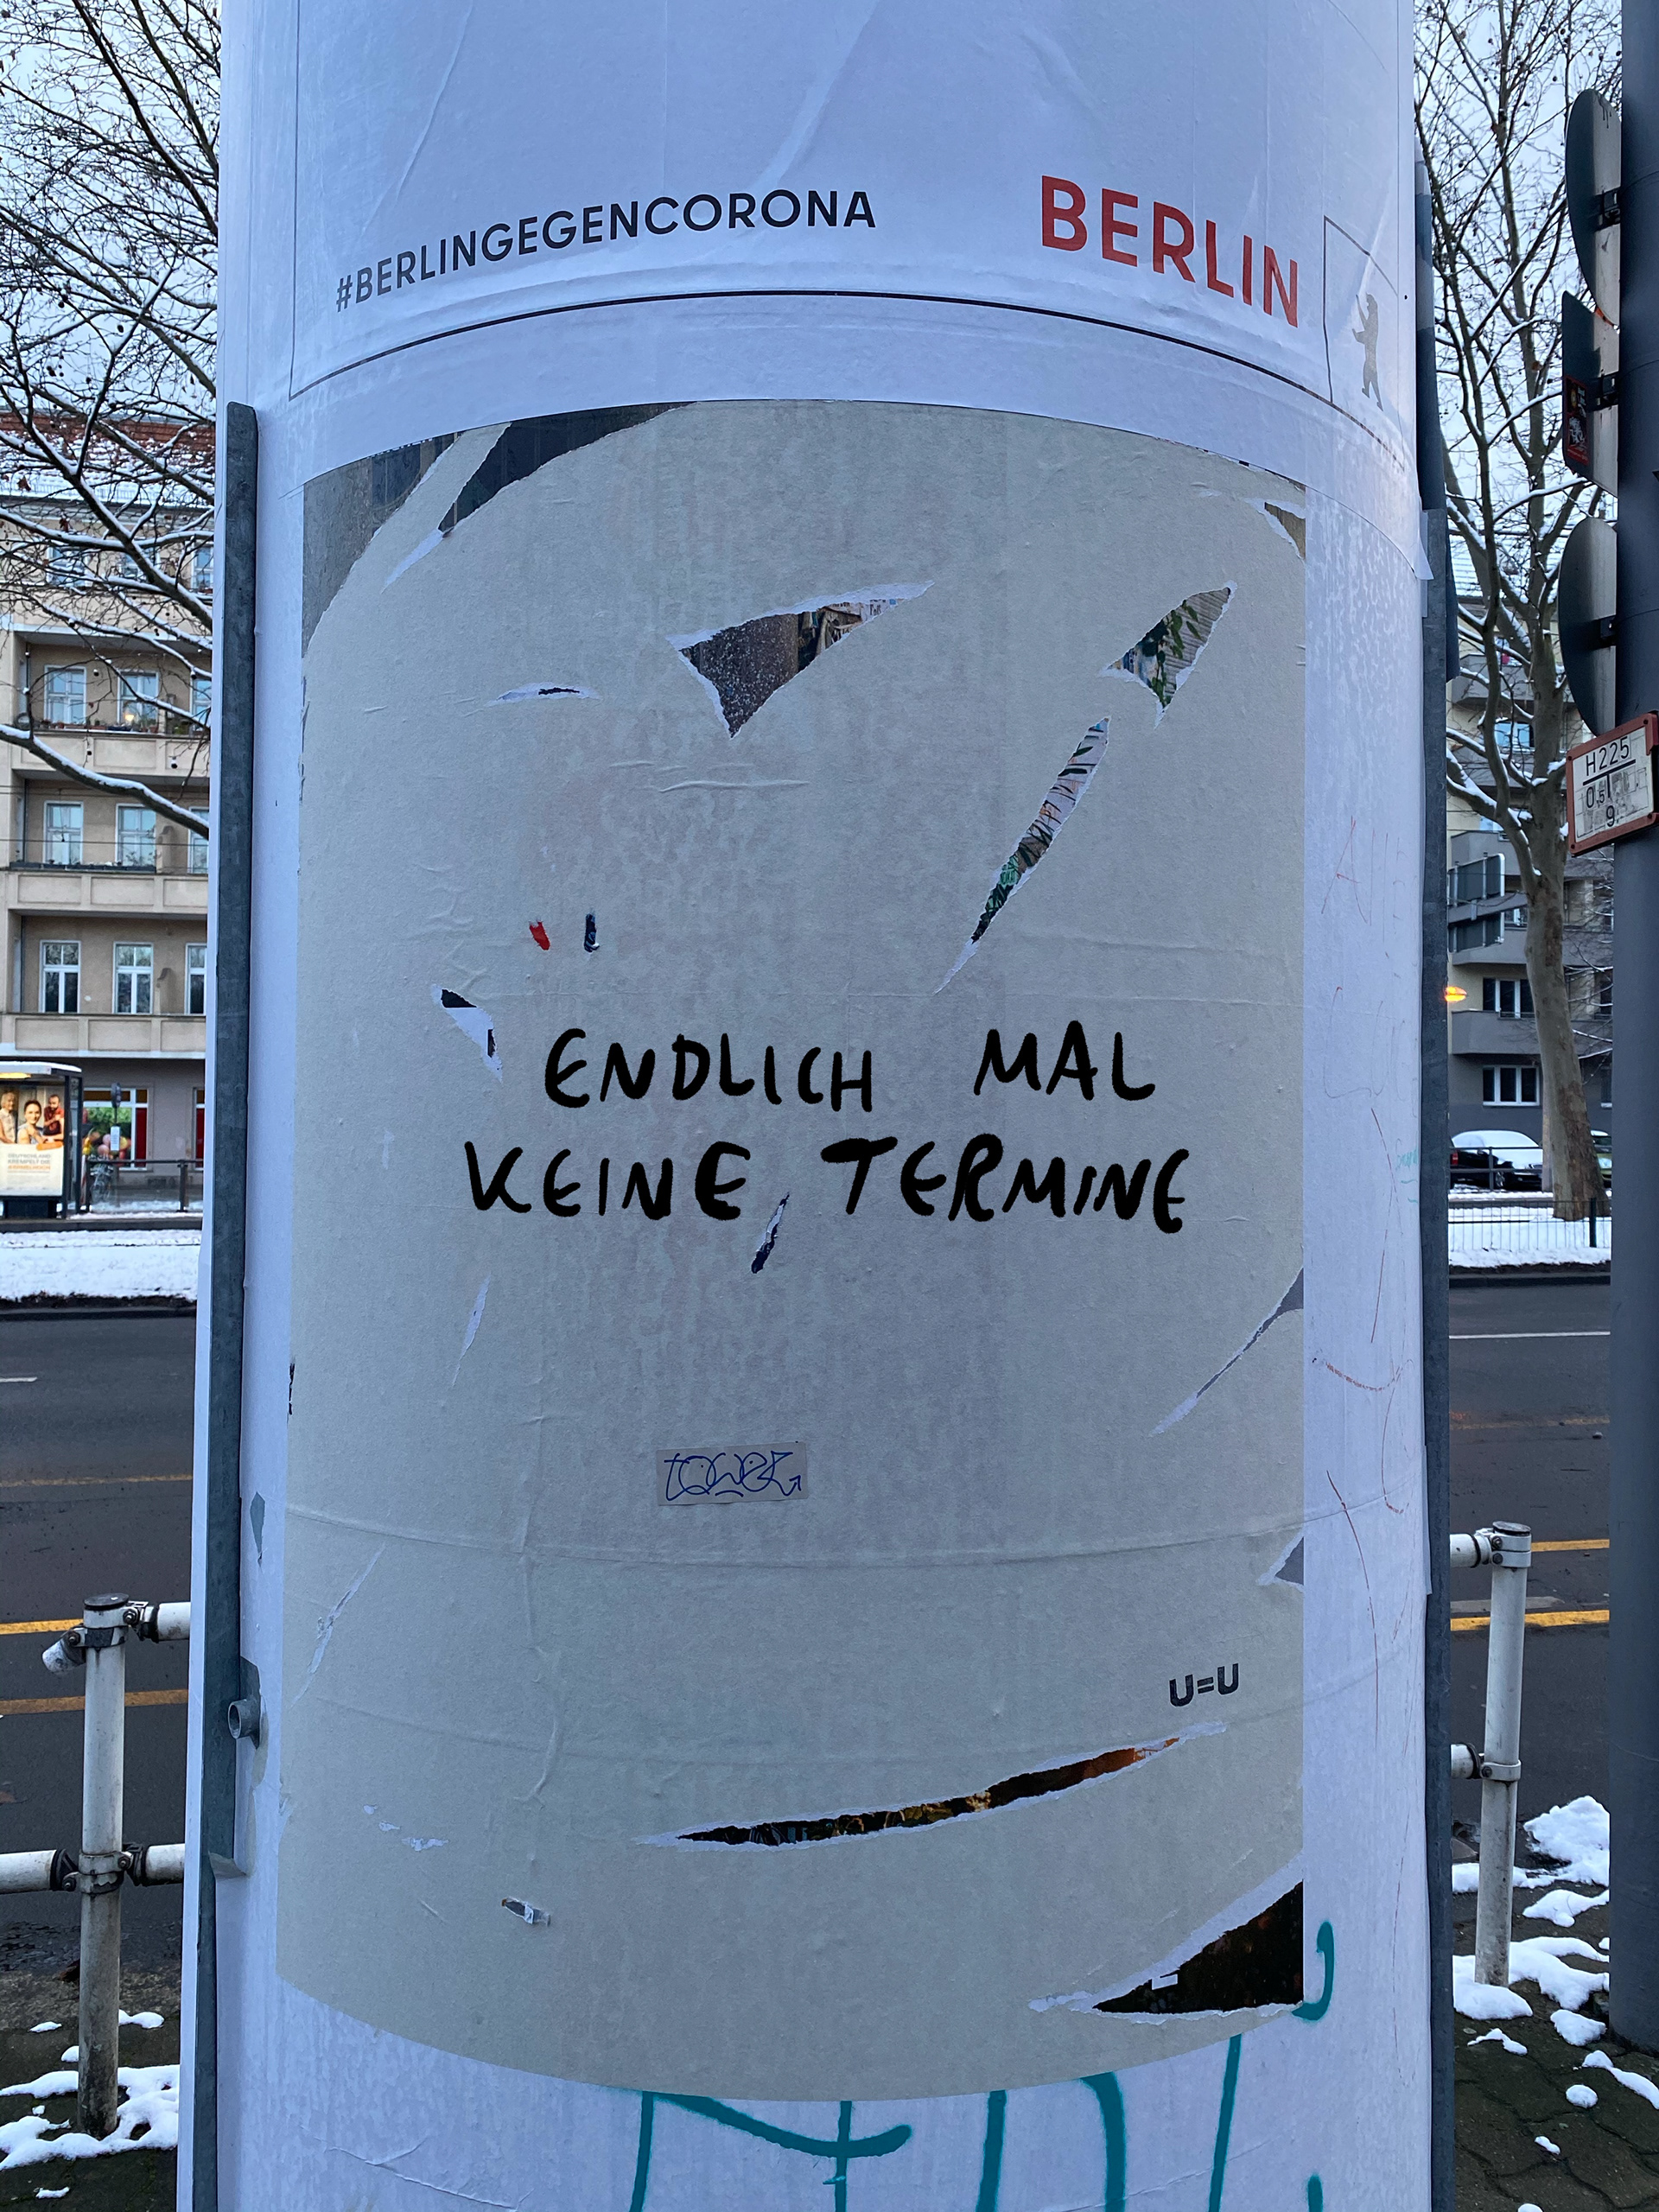 #BERLINGEGENCORONA
BERLIN
ENDLICH MAL
KEINE TERMINE
tower
U=U
H225
0,5
9